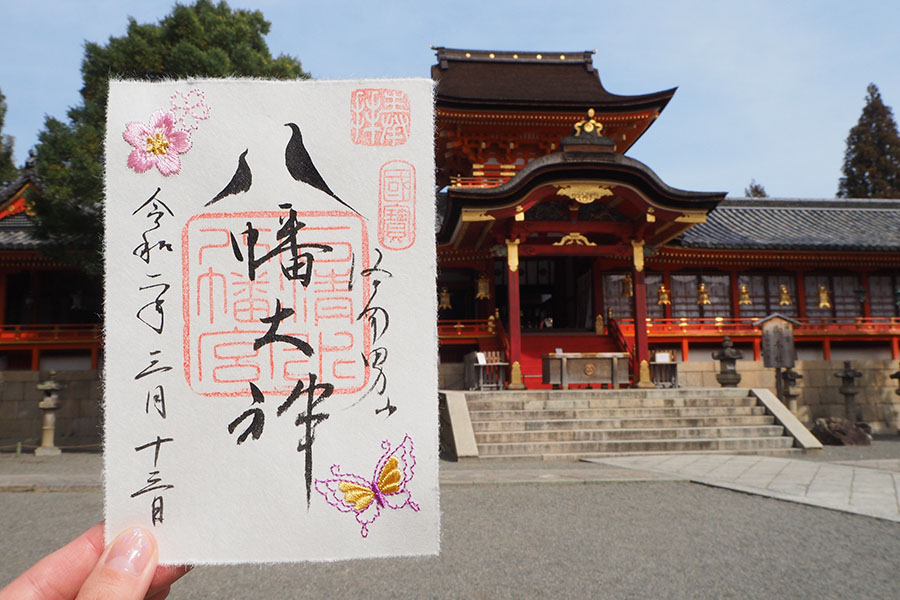 奉拝
國寶
石清水八幡宮
八幡大神
男山
令和二年三月十三日